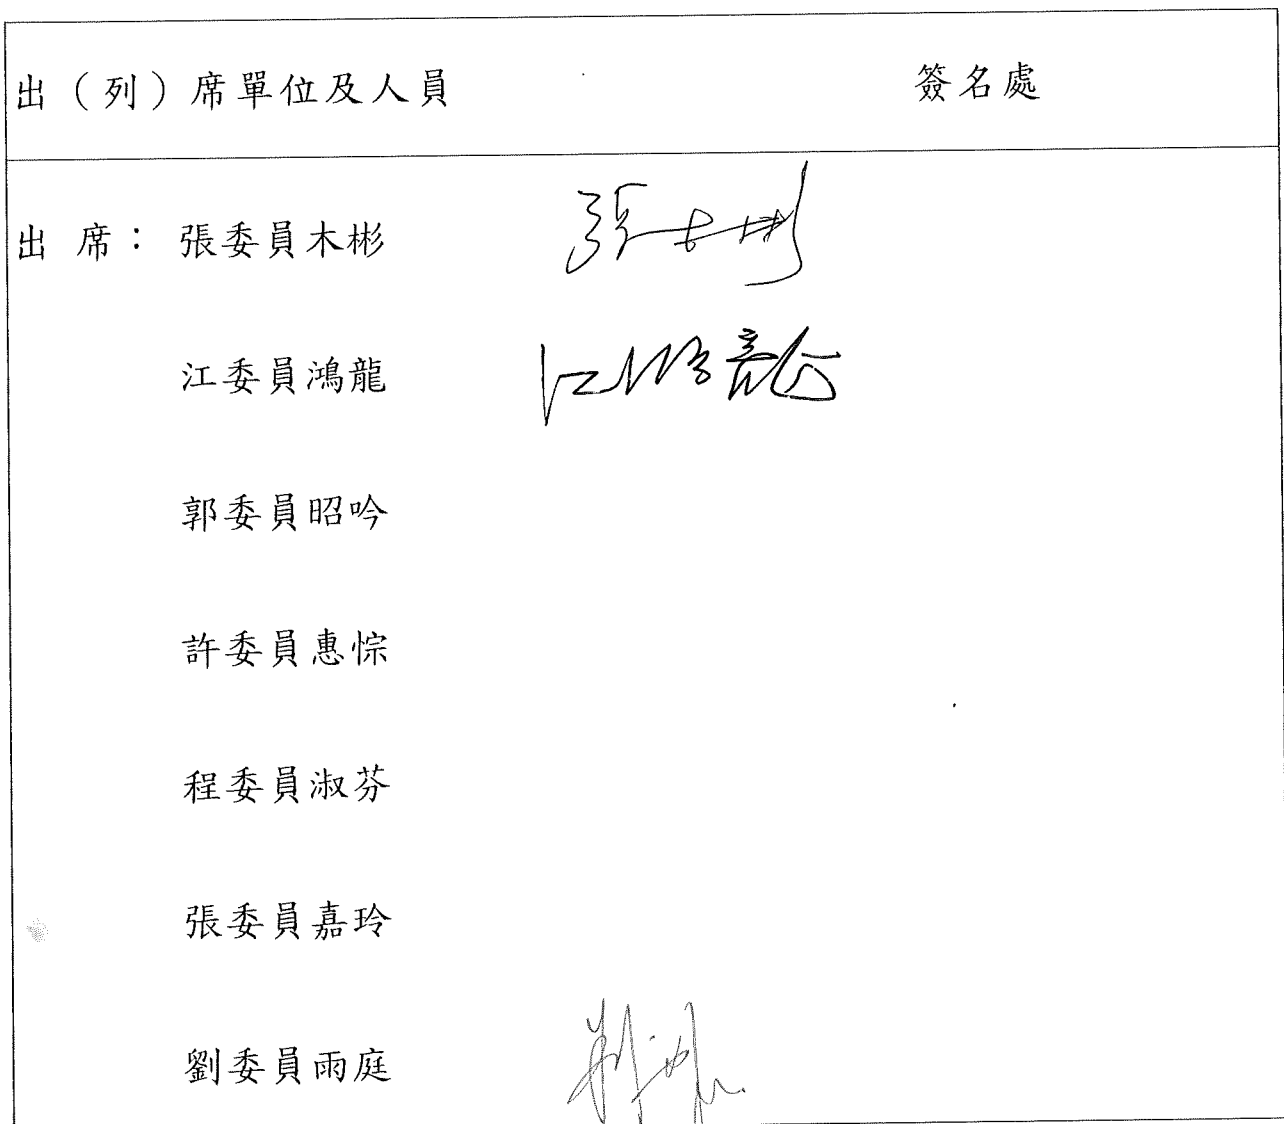 出（列）席單位及人員 簽名處
出 席： 張委員木彬 張木彬
江委員鴻龍 江鴻龍
郭委員昭吟
許委員惠悰
程委員淑芬
張委員嘉玲
劉委員雨庭